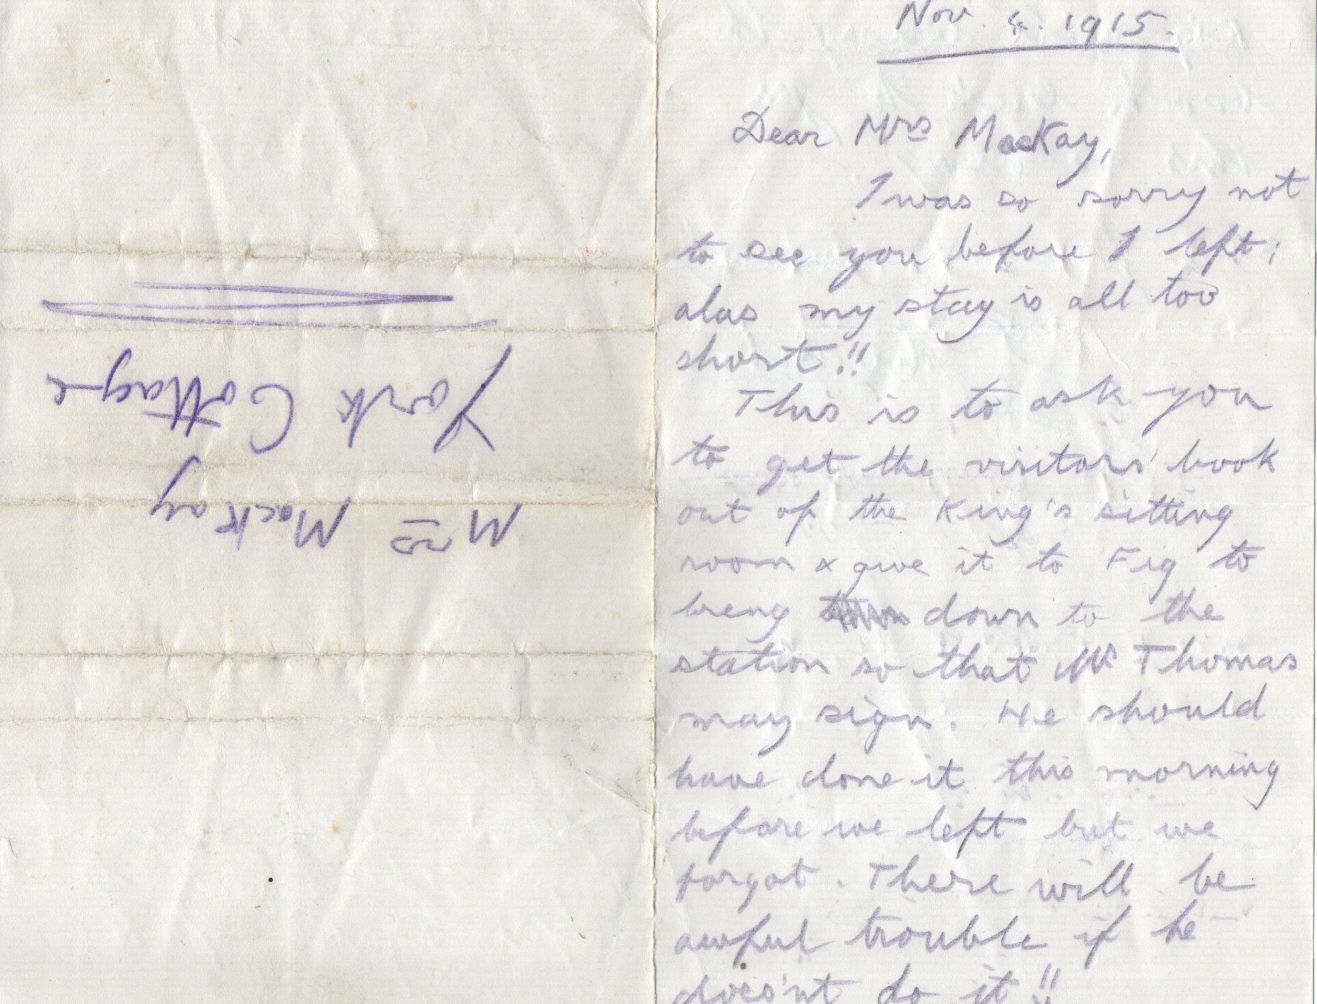 Nov. 4. 1915.
Dear Mrs Mackay,
I was so sorry not
to see you before I left;
alas my stay is all too
short!!
This is to ask you
to get the visitors' book
out of the King's sitting
room & give it to Fig to
breng down to the
station so that Mr Thomas
may sign. He should
have done it this morning
before we left but we
forgot. There will be
awful trouble if he
does'nt do it!!
Mrs Mackay
York Cottage